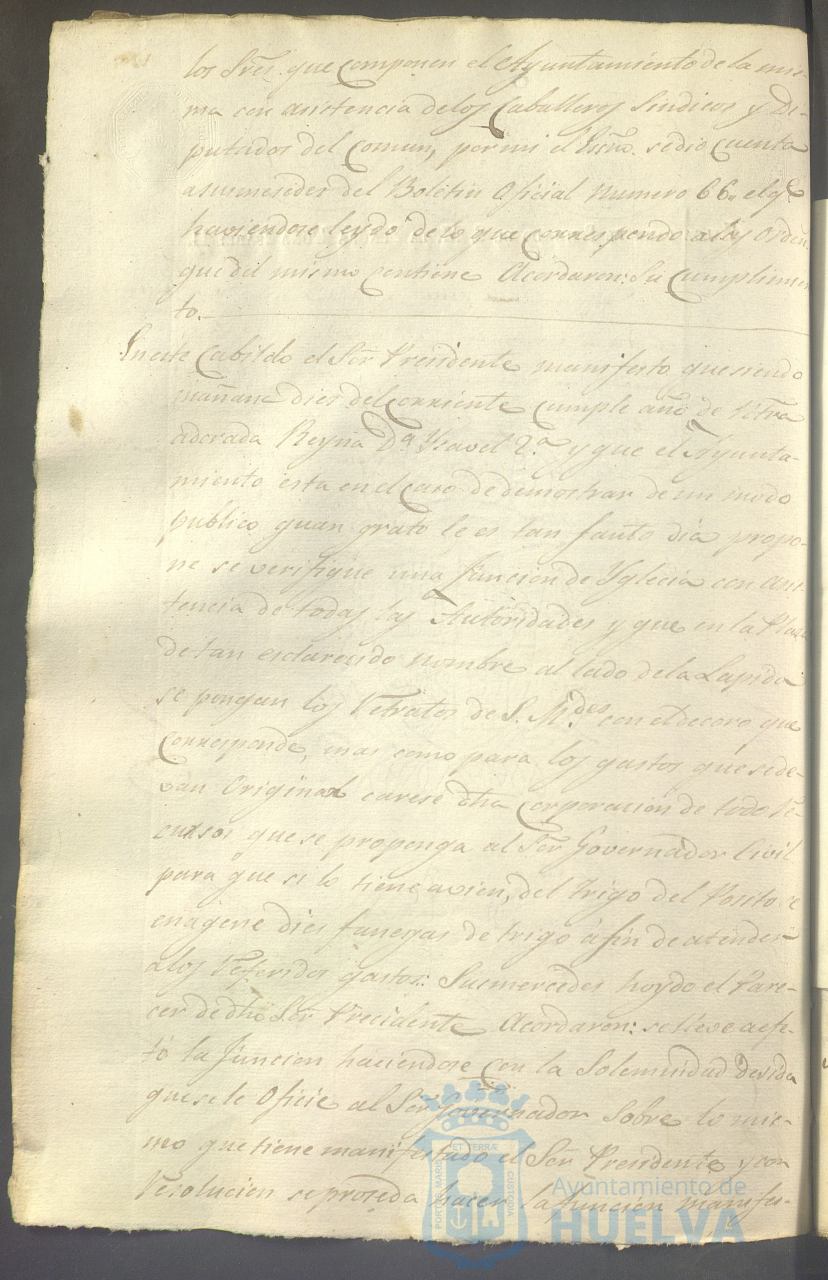 los Sres. que componen el Ayuntamiento de la mis-
ma con asistencia de los Caballeros Sindicos y Di-
putados del Comun, por mi el Esno. se dio cuenta
a sus mercedes del Boletin Oficial numero 66, el qe.
haviendose leydo de lo que corresponde a las Orden.
que del mismo contiene Acordaron: Su Cumplimien
to.
En este Cabildo el Sor. Presidente manifesto que siendo
mañana dies del corriente cumple año de Ntra
adorada Reyna Da. Ysavel 2.a y que el Ayunta-
miento esta en el caso de demostrar de un modo
publico quan grato le es tan fausto dia propo-
ne se verifique una funcion de Yglecia con asis
tencia de todas las Autoridades y que en la Plaza
de tan esclarecido nombre al lado de la Lapida
se pongan los Retratos de S. M.des con el decoro que
corresponde, mas como para los gastos que se de-
van Original carese dha Corporacion de todo Re-
cursos que se proponga al Sor. Governador Civil
para que si lo tiene a vien, del trigo del Posito se
enagene dies fanegas de trigo á fin de atender
a los Referidos gastos: Sus mercedes hoydo el Pare-
cer de dho Sor. Precidente Acordaron: se lleve a efe-
to la funcion haciendose con la Solemnidad devida
que se le Oficie al Sor Governador sobre lo mis-
mo que tiene manifestado el Sor. Presidente y con
Resolucion se proseda hacer la funcion manifes-
PORTUS MARIS ET TERRÆ CUSTODIA
Ayuntamiento de
HUELVA